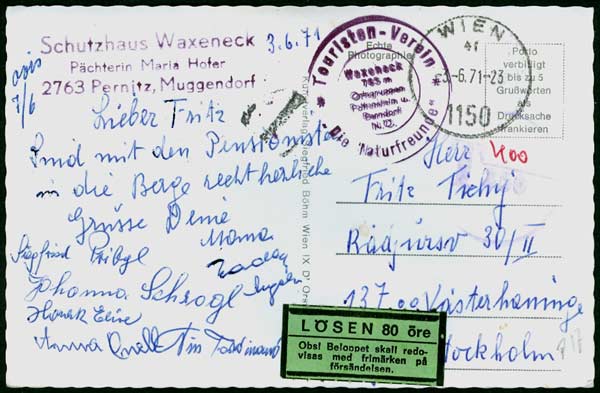 Schutzhaus Waxeneck
Pächterin Maria Hofer
2763 Pernitz, Muggendorf
3.6.71
7/6
Lieber Fritz
Sind mit den Pensionisten
in die Berge recht herzliche
Grüsse Deine
Mama
Siegfried
Johanna Schrogl
Anna
Touristen-Verein
Waxeneck
785 m
Ortsgruppen
Pottenstein u.
Berndorf
N.Ö.
"Die Naturfreunde"
WIEN
3.-6.71-23
1150
Echte
Photographie
Porto
verbilligt
bis zu 5
Grußworten
als
Drucksache
frankieren
Kartenverlag Siegfried Böhm Wien IX
Herr
400
Fritz Tichy
30/II
137 00 Västerhaninge
Stockholm
LÖSEN 80 öre
Obs! Beloppet skall redo-
visas med frimärken på
försändelsen.